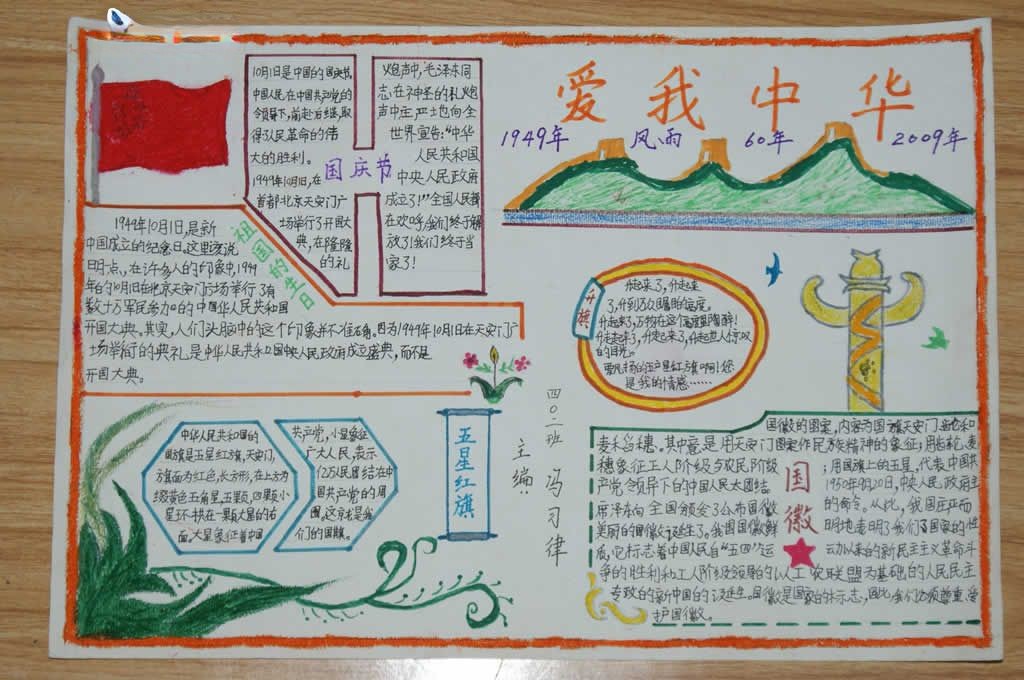 爱我中华
1949年 风雨 60年 2009年
国庆节
10月1日是中国的国庆节,
中国人民在中国共产党的
领导下,前赴后继,取
得了人民革命的伟
大的胜利。
1949年10月1日,在
首都北京天安门广
场举行了开国大
典,在隆隆
的礼
炮声中,毛泽东同
志在神圣的礼炮
声中庄严士也向全
世界宣告:"中华
人民共和国
中央人民政府
成立了!"全国人民都
在欢呼,我们终于解
放了!我们终于当
家了!
祖国的生日
1949年10月1日,是新
中国成立的纪念日。这里该说
明一点,在许多人的印象中,1949
年的10月1日在北京天安门广场举行了有
数十万军民参加的中国华人民共和国
开国大典。其实,人们头脑中的这个印象并不准确。因为1949年10月1日在天安门广
场举行的典礼是中华人民共和国中央人民政府成立盛典,而不是
开国大典。
升旗
升起来了,升起来
了,升到万众瞩目的高度。
升起来了,万物在这个高度
升起来了,升起来了,升起世人惊叹
的目光。
飘扬的五星红旗啊!您
是我的情感……
五星红旗
中华人民共和国的
国旗是五星红旗,天安门,
旗面为红色,长方形,在上方为
缀黄色五角星,五颗,四颗小
星环拱在一颗大星的右
面,大星象征着中国
共产党,小星象征
广大人民,表示
亿万人民团结在中
国共产党的周
围。这就是我
们的国旗。
四〇二班 冯习律
主编:
国徽
国徽的图案,内容为国旗天安门、齿轮和
麦禾谷穗。其中竟是用天安门图案作民族精神的象征;用齿轮、麦
穗象征工人阶级与农民阶级;用国旗上的五星,代表中国共
产党领导下的中国人民大团结。1950年9月20日,中央人民政府主
席泽东向全国颁发了公布国徽的命令。从此,我国庄严而
美丽的国徽诞生了。我国国徽鲜明地表明了我们了国家的性
质,它标志着中国人民自"五四"运动以来的新民主主义革命斗
争的胜利和工人阶级领导的以人工农联盟为基础的人民民主
专政的新中国的诞生。国徽是国家的标志,因此我们必须尊重,爱
护国徽。